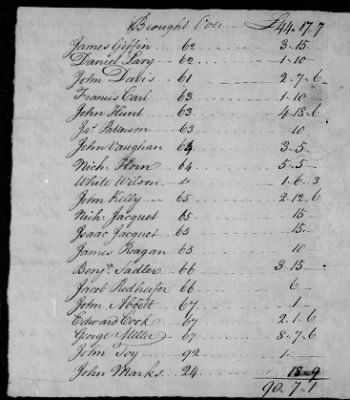 Brought Over £44.17.7
James Giffin 62 3.15
Daniel Lary 62 1.10
John Davis 61 2.7.6
Francis Carl 63 1.10
John Hunt 63 4.18.6
Jas Patterson 63 10
John Vaughan 64 3.5
Nich. Horn 64 5.5
White Wilson " 1.6.3
John Kelly 65 2.12.6
Nich. Jacquet 65 15
Isaac Jacquet 65 15
James Reagan 65 10
Benjn Sadler 66 3.15
Jacob Redheifer 66 6
John Abbett 67 1
Edward Cook 67 2.1.6
George Miller 67 8.7.6
John Toy 92 1
John Marks 24 18.9
90.7.1